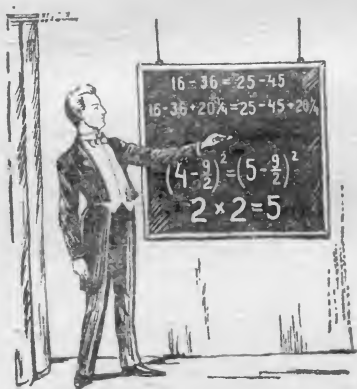 16-36=25-45
16-36+20¼=25-45+20¼
(4-9/2)²=(5-9/2)²
2×2=5